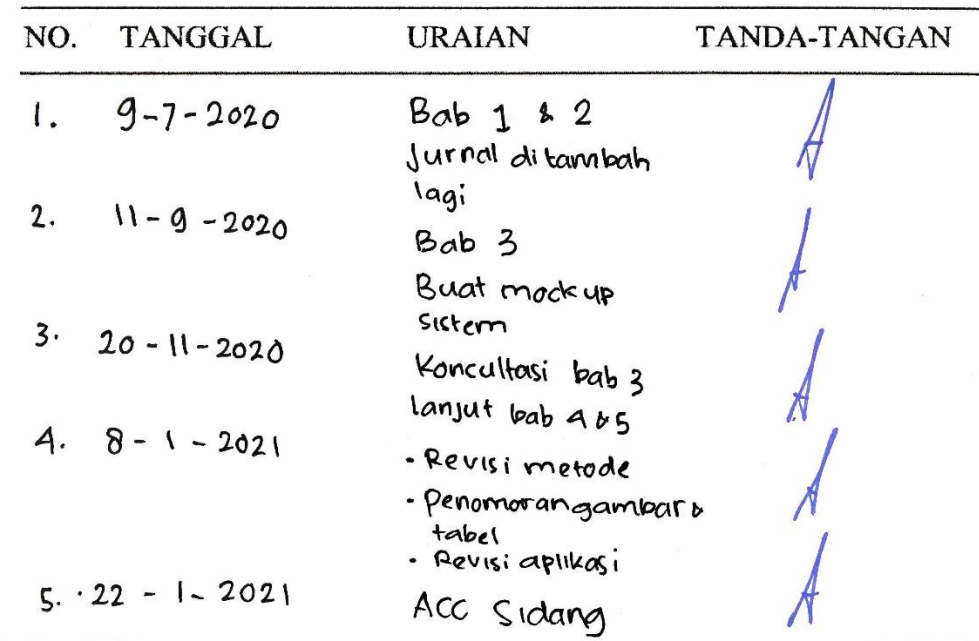 NO. TANGGAL URAIAN TANDA-TANGAN
1. 9-7-2020 Bab 1 & 2
Jurnal ditambah
lagi
2. 11-9-2020
Bab 3
Buat mockup
sistem
3. 20-11-2020
Koncultasi bab 3
lanjut bab 4 & 5
4. 8-1-2021
- Revisi metode
- Penomoran gambar &
tabel
- Revisi aplikasi
5. 22-1-2021 ACC Sidang